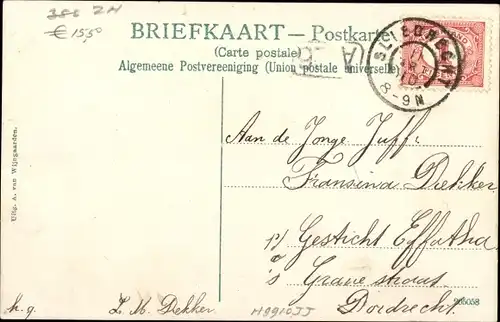 386 ZH
€ 15,50
BRIEFKAART — Postkarte
(Carte postale)
Algemeene Postvereeniging (Union postale universelle)
SLIEDRECHT
8-9N
Aan de Jonge Juffr.
Fransina Dekker
p/a Gesticht Effatha
's Gravestraat
Dordrecht.
Uitg. A. van Wijngaarden.
h.g. L. M. Dekker
M9910JJ
266058